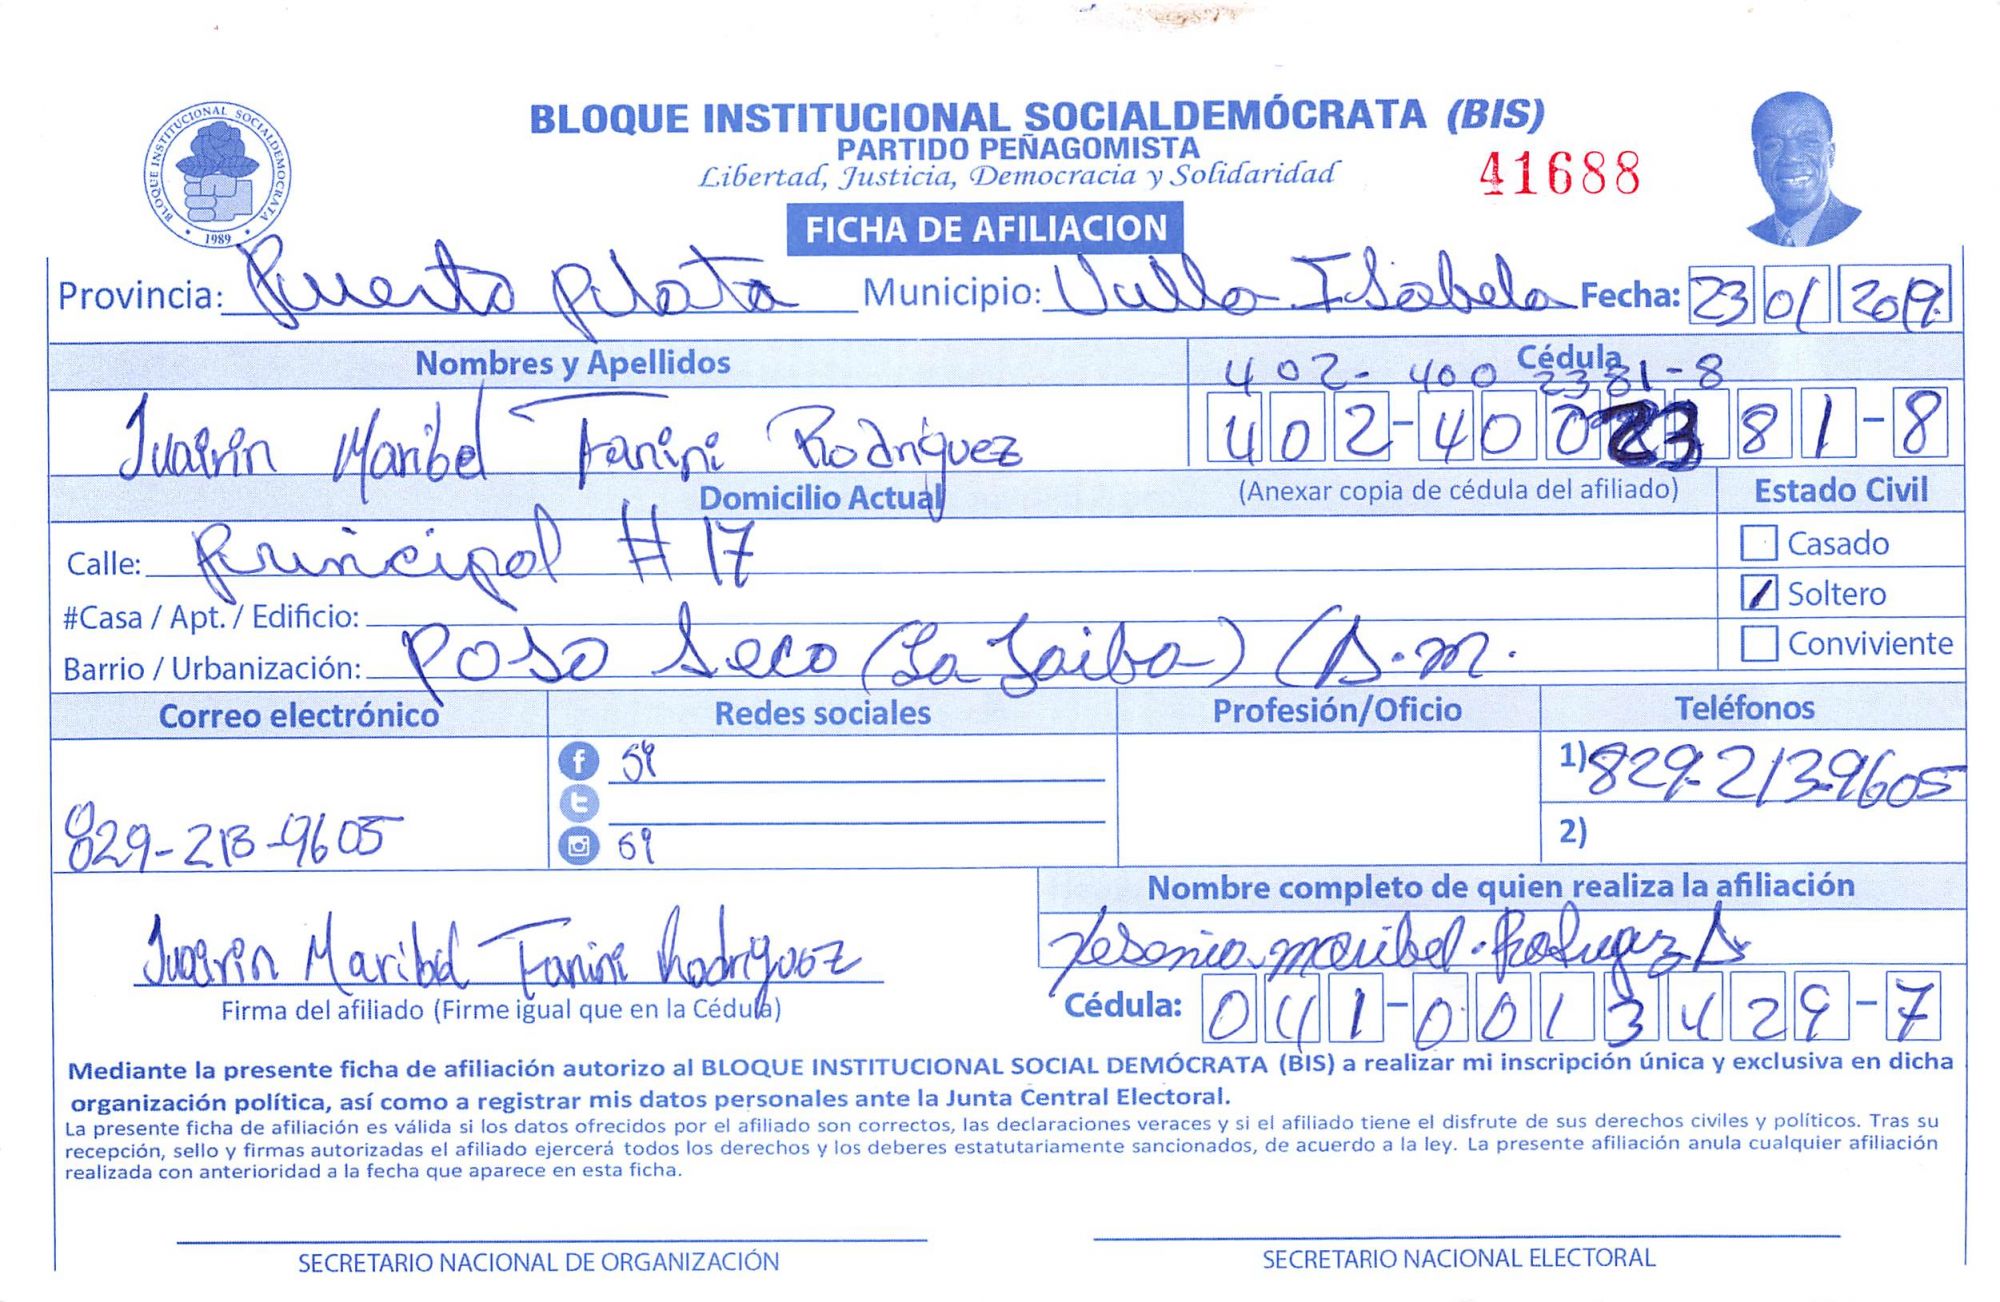 BLOQUE INSTITUCIONAL SOCIALDEMÓCRATA
1989
BLOQUE INSTITUCIONAL SOCIALDEMÓCRATA (BIS)
PARTIDO PEÑAGOMISTA
Libertad, Justicia, Democracia y Solidaridad
41688
FICHA DE AFILIACION
Provincia: Puerto Plata Municipio: Villa Isabela Fecha: 23 01 2019
Nombres y Apellidos Cédula
402-400 2381-8
Juairin Maribel Fanini Rodríguez 402-4002381-8
Domicilio Actual (Anexar copia de cédula del afiliado) Estado Civil
Calle: Principal # 17 Casado
#Casa / Apt. / Edificio: Soltero
Barrio / Urbanización: Poso Seco (La Jaiba) (D.m. Conviviente
Correo electrónico Redes sociales Profesión/Oficio Teléfonos
f 1) 829-213-9605
829-213-9605 2)
Nombre completo de quien realiza la afiliación
Juairin Maribel Fanini Rodriguez Yesenia maribel Rodriguez
Firma del afiliado (Firme igual que en la Cédula) Cédula: 041-0013429-7
Mediante la presente ficha de afiliación autorizo al BLOQUE INSTITUCIONAL SOCIAL DEMÓCRATA (BIS) a realizar mi inscripción única y exclusiva en dicha
organización política, así como a registrar mis datos personales ante la Junta Central Electoral.
La presente ficha de afiliación es válida si los datos ofrecidos por el afiliado son correctos, las declaraciones veraces y si el afiliado tiene el disfrute de sus derechos civiles y políticos. Tras su
recepción, sello y firmas autorizadas el afiliado ejercerá todos los derechos y los deberes estatutariamente sancionados, de acuerdo a la ley. La presente afiliación anula cualquier afiliación
realizada con anterioridad a la fecha que aparece en esta ficha.
SECRETARIO NACIONAL DE ORGANIZACIÓN SECRETARIO NACIONAL ELECTORAL